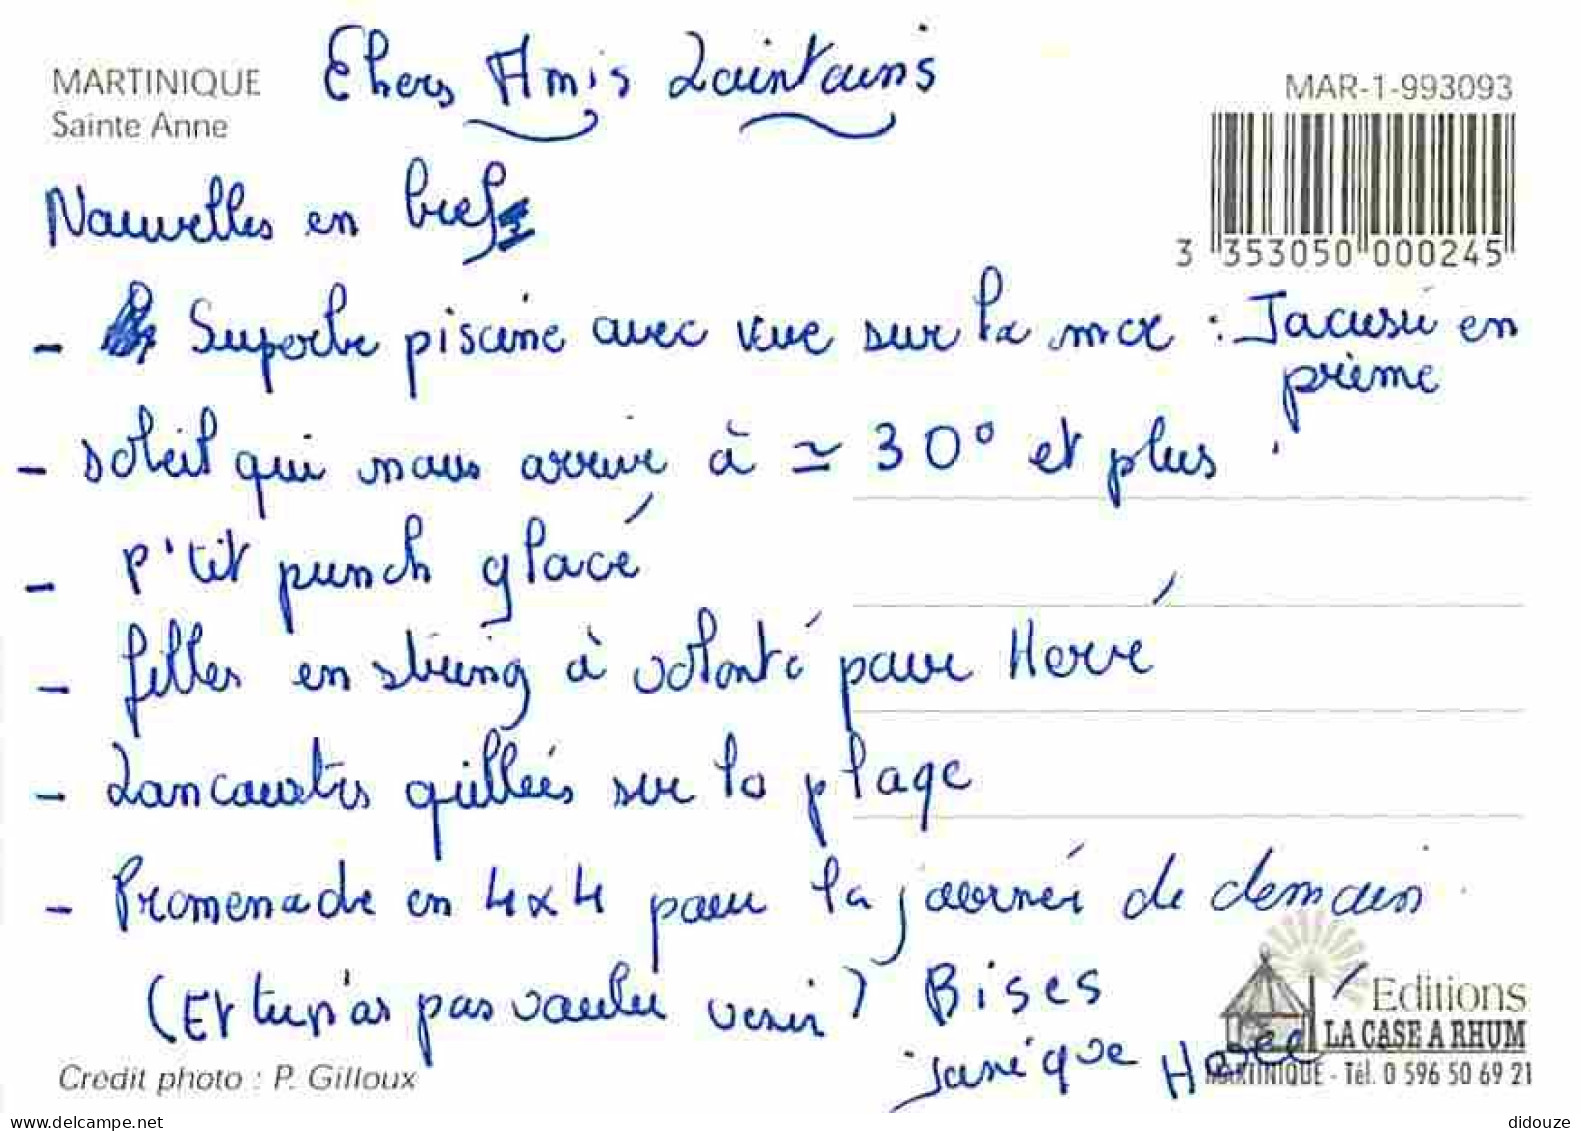 MARTINIQUE
Sainte Anne
Chers Amis Lointains
MAR-1-993093
3 353050 000245
Nouvelles en bref
- Superbe piscine avec vue sur la mer : Jacusii en
prime
- soleil qui nous arrive à ≃ 30° et plus.
- P'tit punch glacé
- filles en string à volonté pour Hervé
- Langoustes grillées sur la plage
- Promenade en 4x4 pour la journée de demain.
(Et tu n'as pas voulu venir) Bises
Janique Hervé
Editions
LA CASE A RHUM
MARTINIQUE - Tél. 0 596 50 69 21
Credit photo : P. Gilloux
didouze